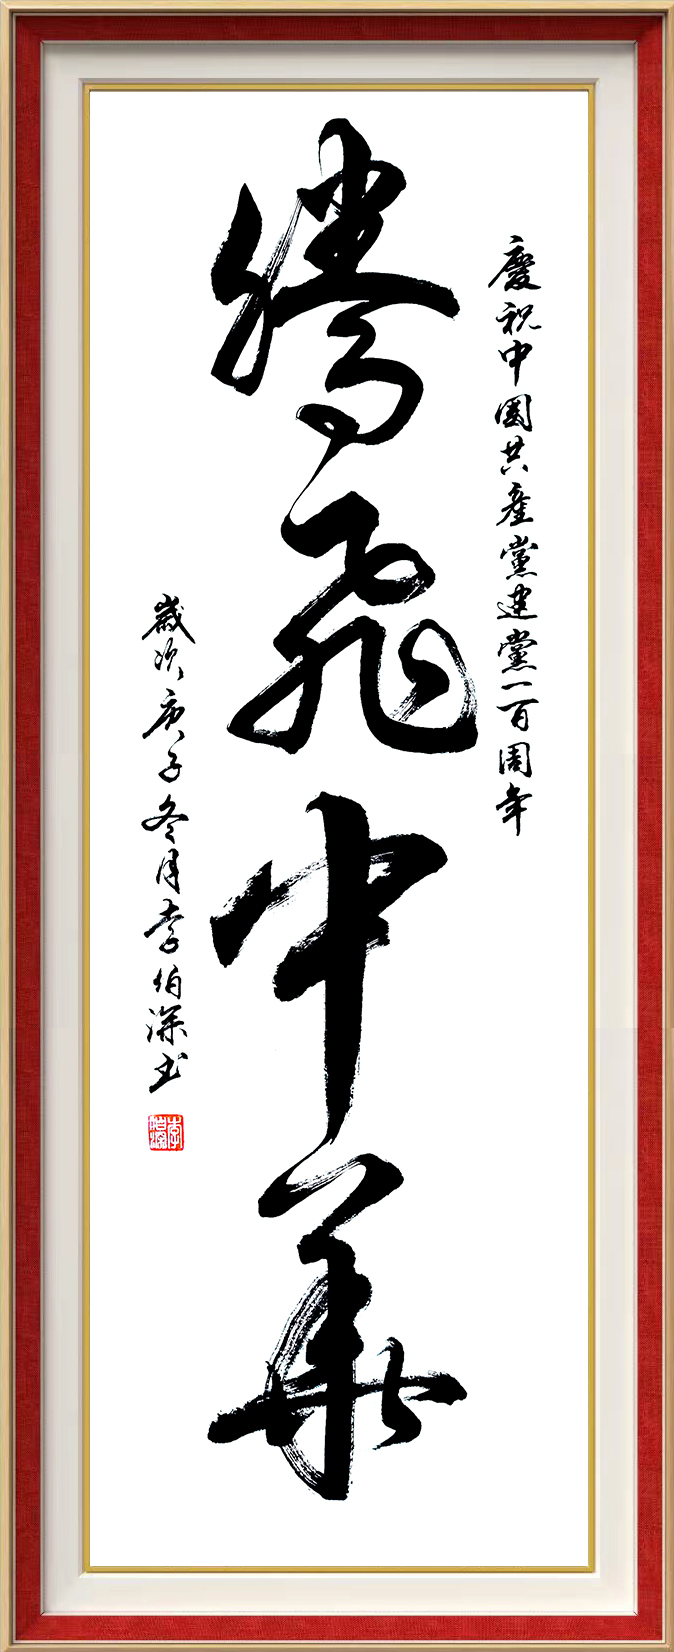 慶祝中國共產黨建黨一百周年
騰飛中華
歲次庚子冬月李伯深书